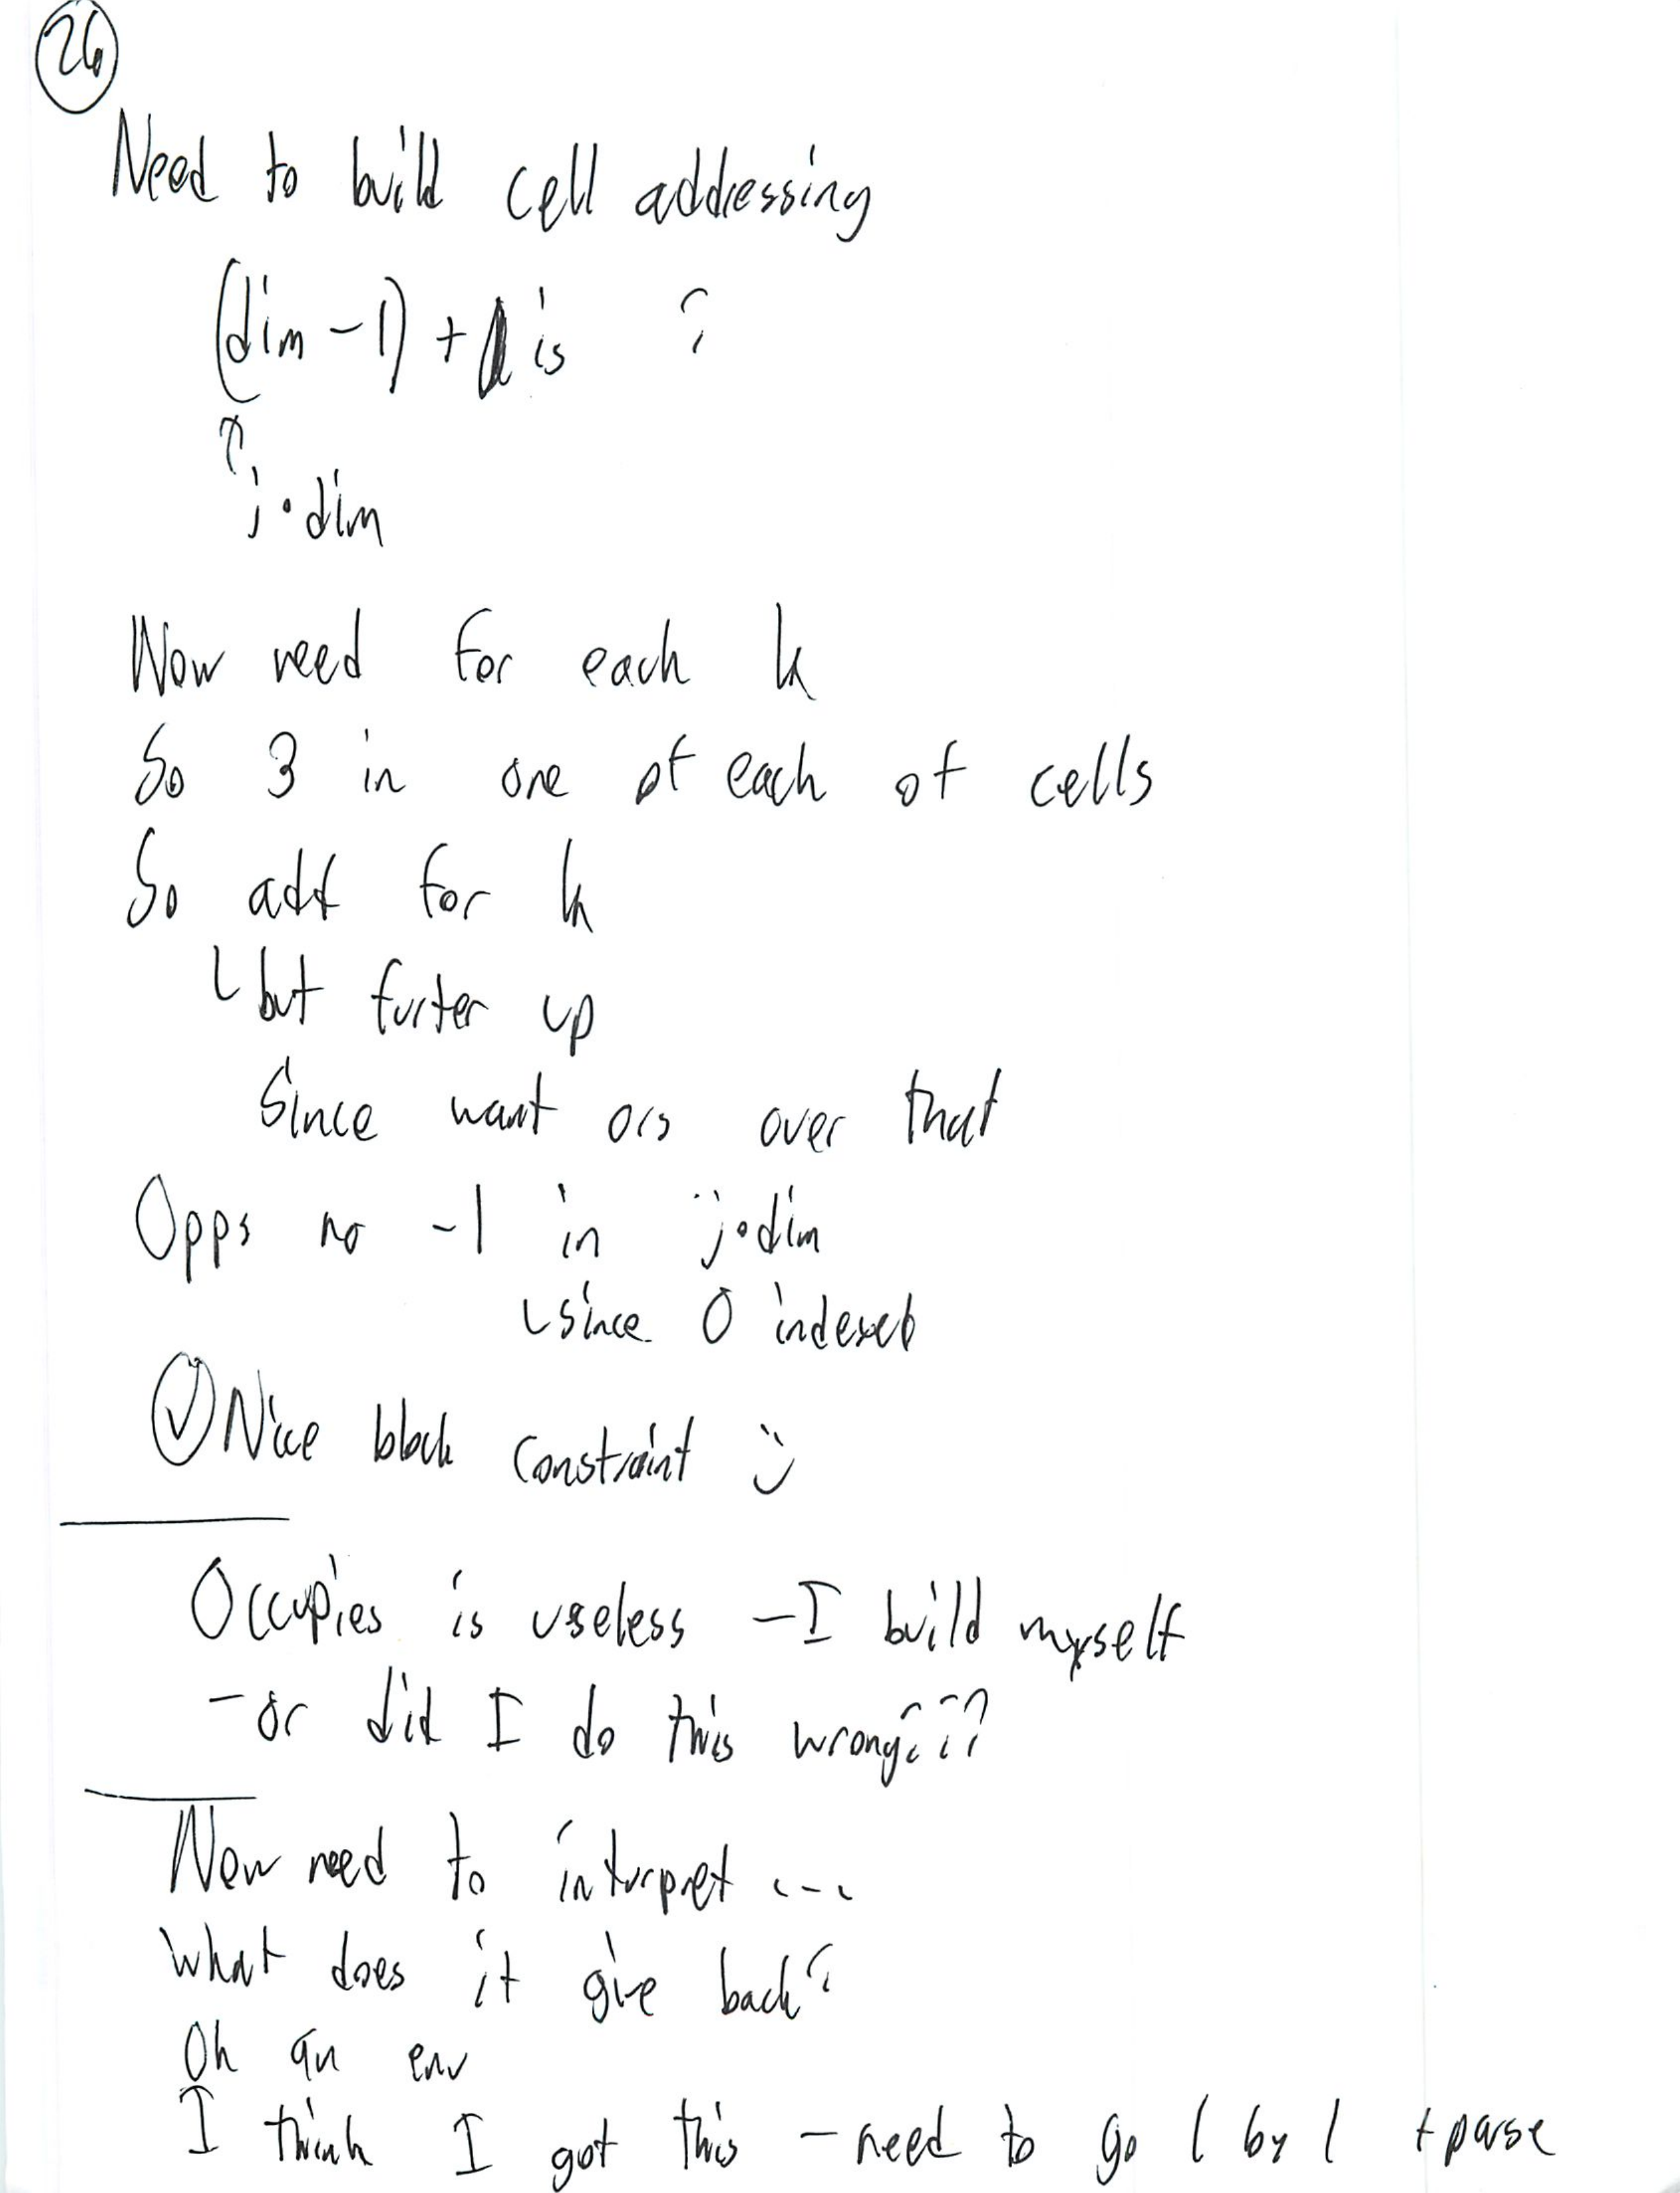 26
Need to build cell addressing
(dim -1) + is ?
↑
j•dim
Now need for each k
So 3 in one of each of cells
So add for k
└ but furter up
Since want ors over that
Opps no -1 in j•dim
└ since 0 indexed
✓ Nice block constraint :)
Occupies is useless - I build myself
- or did I do this wrong???
Now need to interpret ...
What does it give back?
Oh an env
I think I got this - need to go 1 by 1 + parse